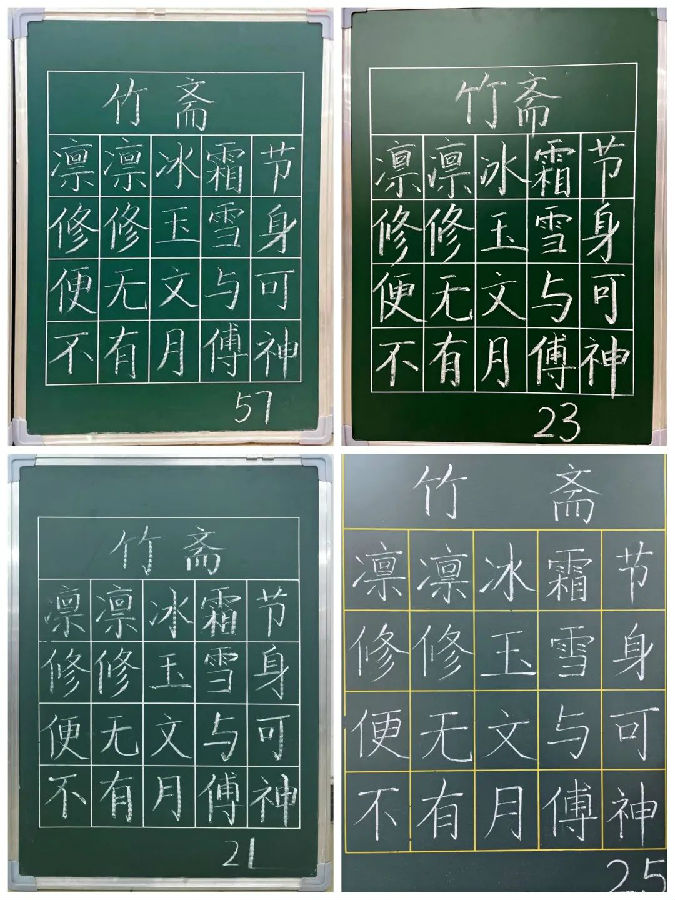 竹斋
凛凛冰霜节
修修玉雪身
便无文与可
不有月傅神
57
竹斋
凛凛冰霜节
修修玉雪身
便无文与可
不有月傅神
23
竹斋
凛凛冰霜节
修修玉雪身
便无文与可
不有月傅神
21
竹斋
凛凛冰霜节
修修玉雪身
便无文与可
不有月傅神
25